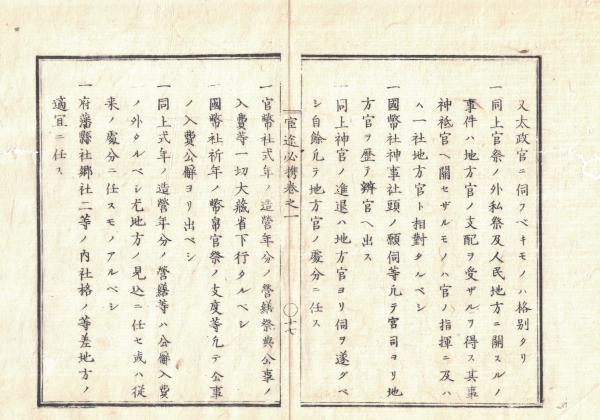 又太政官ニ伺フベキモノハ格別タリ
一同上官祭ノ外私祭及人民地方ニ關スルノ
事件ハ地方官ノ支配ヲ受ザルヲ得ス其事
神祗官ヘ關セザルモノハ官ノ指揮ニ及ハ
ハ一社地方官ト相對タルベシ
一國幣社神事社頭ノ願伺等凡テ宮司ヨリ地
方官ヲ歴テ辨官ヘ出ス
一同上神官ノ進退ハ地方官ヨリ伺ヲ遂グベ
シ自餘凡テ地方官ノ處分ニ任ス
宦途必携卷之一
〇十七
一官幣社式年ノ造營年分ノ營繕祭典公事ノ
入費等一切大藏省下行タルベシ
一國幣社祈年ノ幣帛官祭ノ支度等凡テ公事
ノ入費公廨ヨリ出ベシ
一同上式年ノ造營年分ノ營繕等ハ公廨入費
ノ外タルベシ尤地方ノ見込ニ任セ或ハ從
来ノ處分ニ任スモノアルベシ
一府藩縣社郷社二等ノ内社格ノ等差地方ノ
適宜ニ任ス